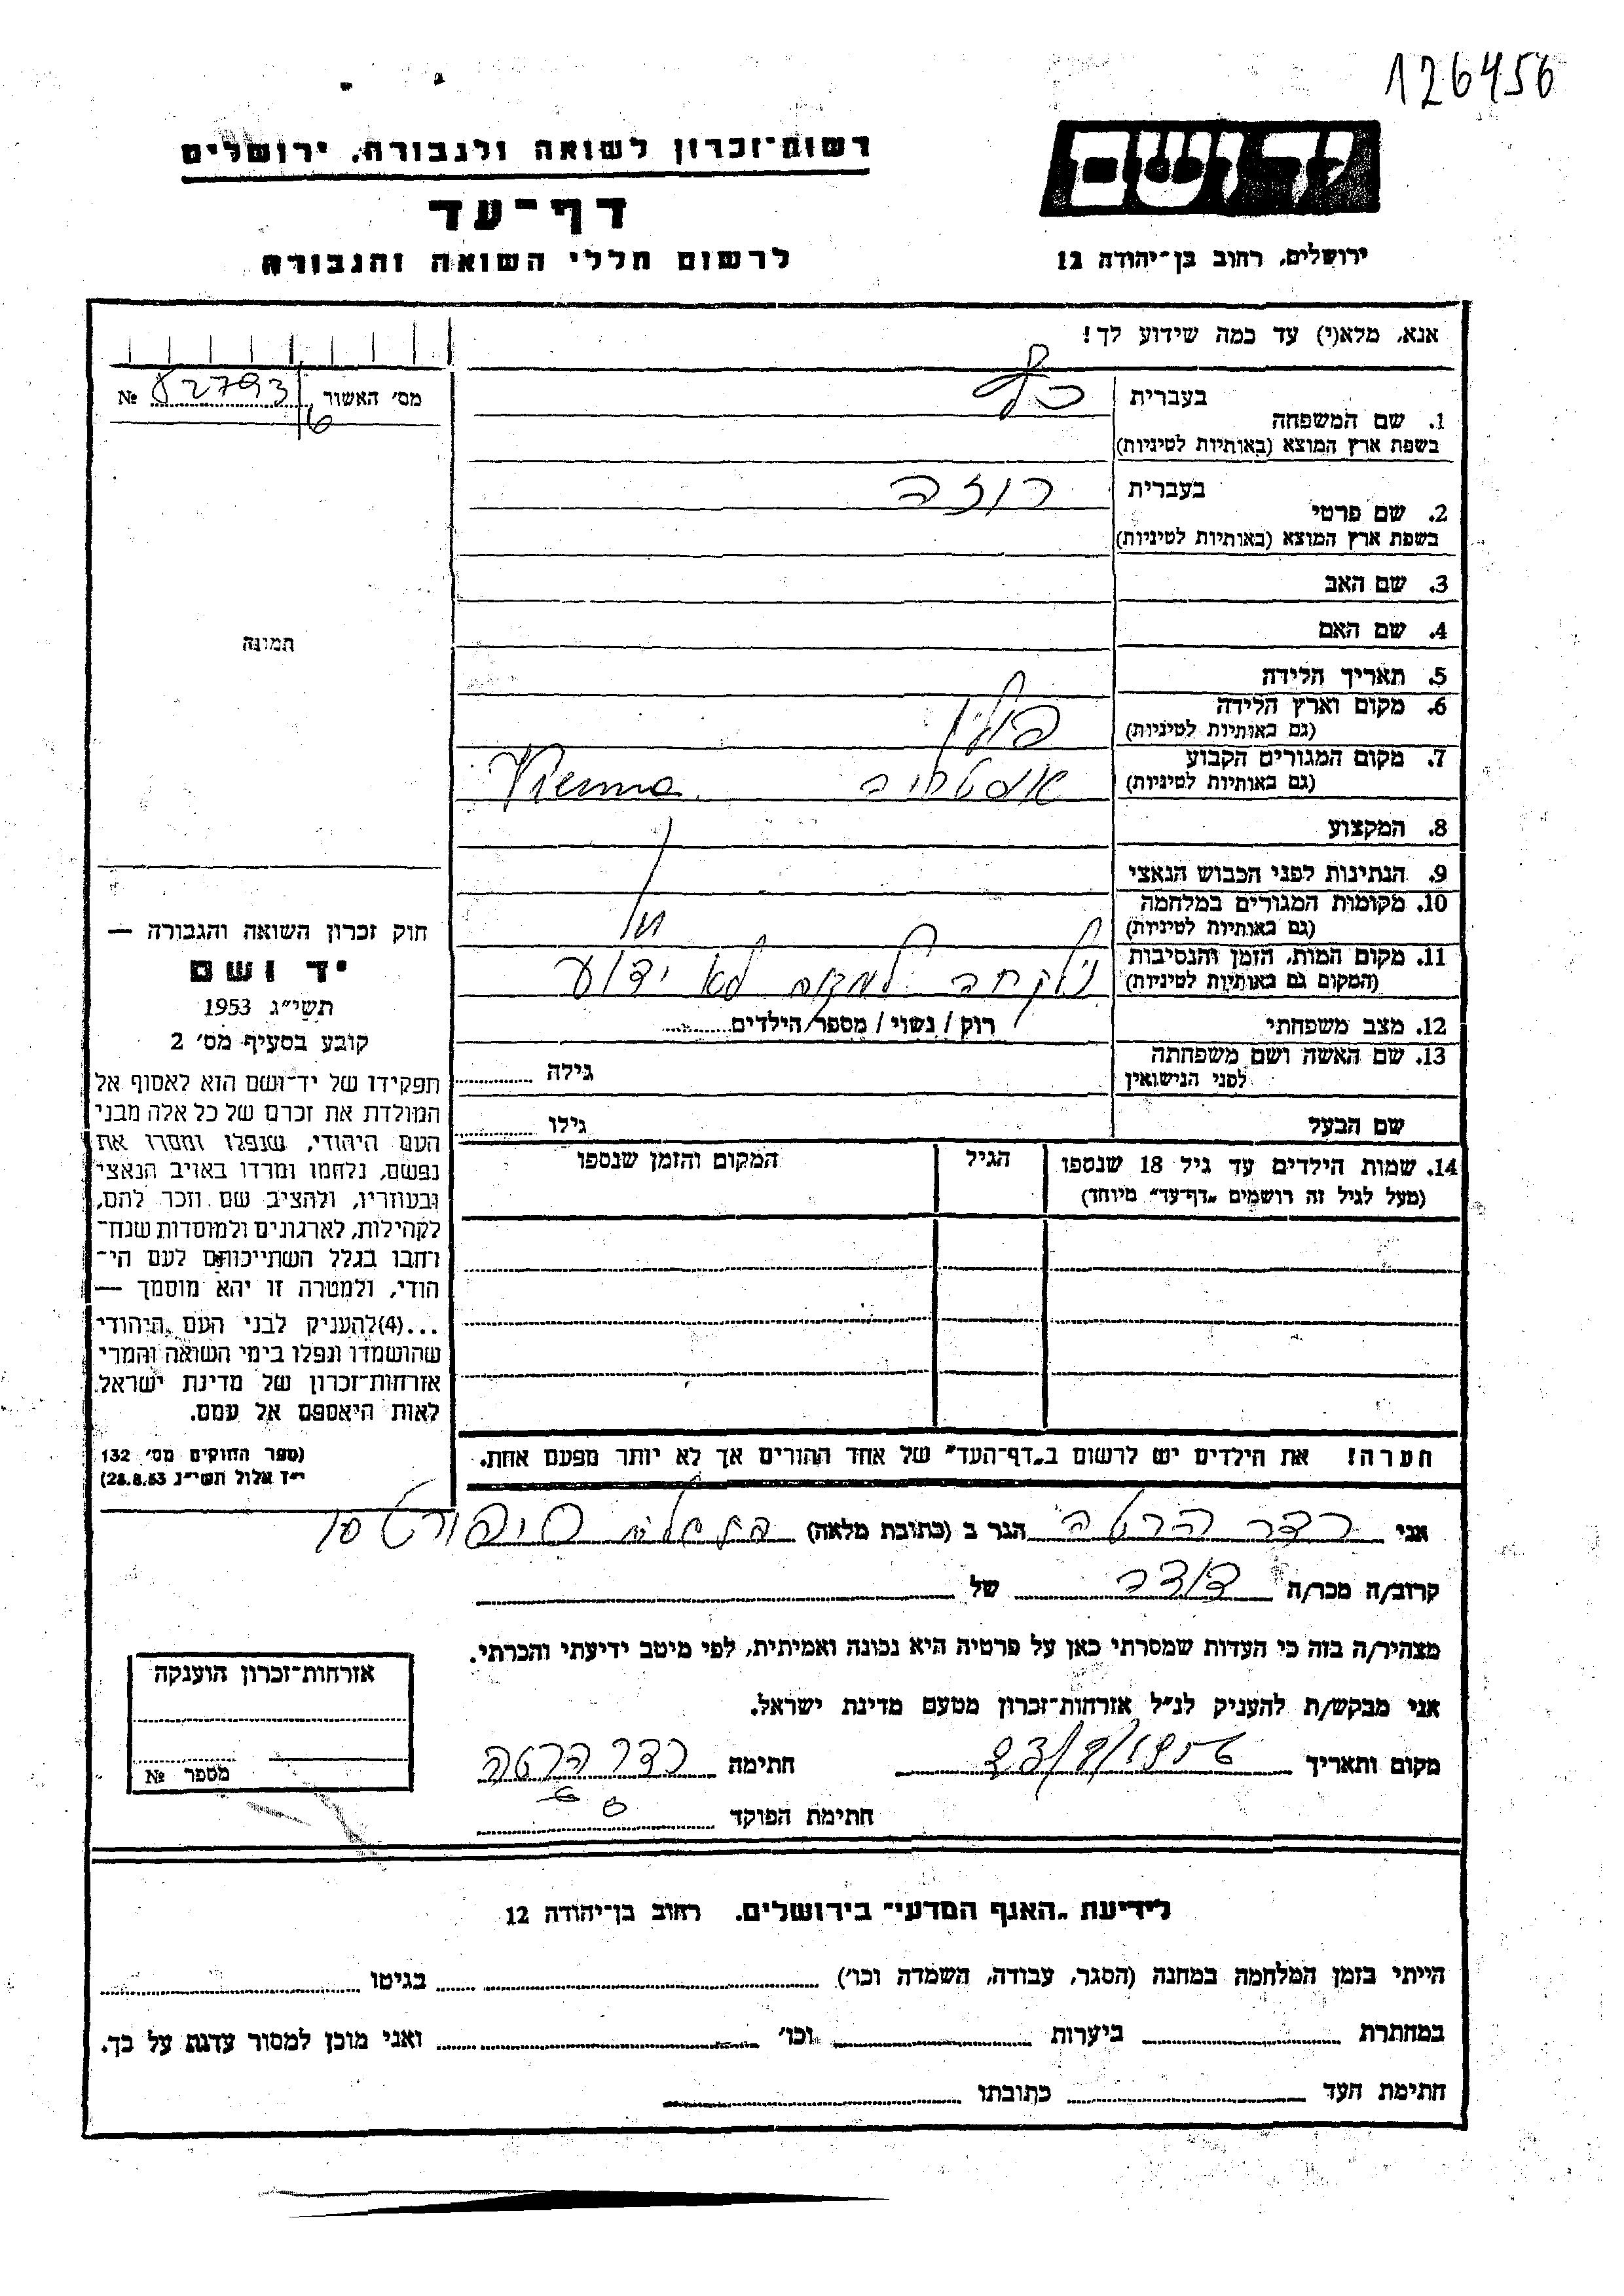 126456
רשות־זכרון לשואה ולגבורה, ירושלים
יד ושם
דף־עד
לרשום חללי השואה והגבורה
ירושלים, רחוב בן־יהודה 12
אנא, מלא(י) עד כמה שידוע לך!
מס׳ האשור 82793/6 №
בעברית
1. שם המשפחה
בשפת ארץ המוצא (באותיות לטיניות)
בעברית רוזה
2. שם פרטי
בשפת ארץ המוצא (באותיות לטיניות)
3. שם האב
תמונה
4. שם האם
5. תאריך הלידה
6. מקום וארץ הלידה פולין
(גם באותיות לטיניות)
7. מקום המגורים הקבוע אוסטריה Vienna
(גם באותיות לטיניות)
8. המקצוע
9. הנתינות לפני הכבוש הנאצי
10. מקומות המגורים במלחמה
(גם באותיות לטיניות)
11. מקום המות, הזמן והנסיבות נלקחה למקום לא ידוע
(המקום גם באותיות לטיניות)
12. מצב משפחתי רוק / נשוי / מספר הילדים
13. שם האשה ושם משפחתה גילה
לפני הנישואין
שם הבעל גילו
14. שמות הילדים עד גיל 18 שנספו הגיל המקום והזמן שנספו
(מעל לגיל זה רושמים „דף־עד” מיוחד)
חוק זכרון השואה והגבורה —
יד ושם
תשי״ג 1953
קובע בסעיף מס׳ 2
תפקידו של יד־ושם הוא לאסוף אל
המולדת את זכרם של כל אלה מבני
העם היהודי, שנפלו ומסרו את
נפשם, נלחמו ומרדו באויב הנאצי
ובעוזריו, ולהציב שם וזכר להם,
לקהילות, לארגונים ולמוסדות שנח־
רחבו בגלל השתייכותם לעם הי־
הודי, ולמטרה זו יהא מוסמך —
...(4)להעניק לבני העם היהודי
שהושמדו ונפלו בימי השואה והמרי
אזרחות־זכרון של מדינת ישראל
לאות היאספם אל עמם.
(ספר החוקים מס׳ 132
י״ז אלול תשי״ג 28.8.53)
הערה! את הילדים יש לרשום ב„דף־העד” של אחד ההורים אך לא יותר מפעם אחת.
אני רדר הרטה הגר ב (כתובת מלאה)
קרוב/ה מכר/ה דודה של
מצהיר/ה בזה כי העדות שמסרתי כאן על פרטיה היא נכונה ואמיתית, לפי מיטב ידיעתי והכרתי.
אני מבקש/ת להעניק לנ״ל אזרחות־זכרון מטעם מדינת ישראל.
מקום ותאריך 23/9/1956 חתימה רדר הרטה
חתימת הפוקד
אזרחות־זכרון הוענקה
מספר №
לידיעת „האגף המדעי” בירושלים. רחוב בן־יהודה 12
הייתי בזמן המלחמה במחנה (הסגר, עבודה, השמדה וכו׳) בגיטו
במחתרת ביערות וכו׳ ואני מוכן למסור עדות על כך.
חתימת העד כתובתו